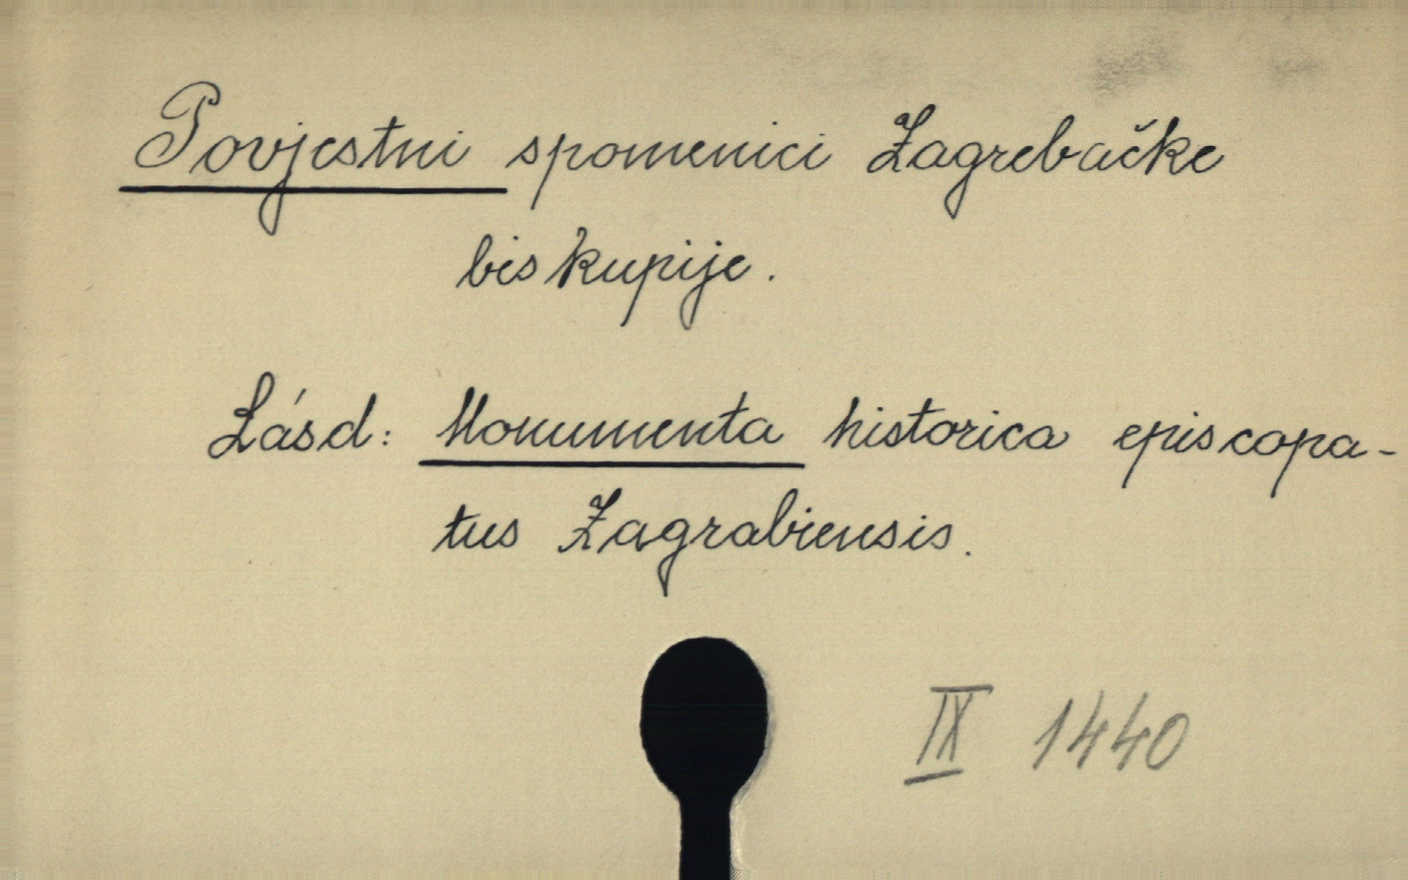 Povjestni spomenici Zagrebačke
biskupije.
Lásd: Monumenta historica episcopa-
tus Zagrabiensis.
IX 1440